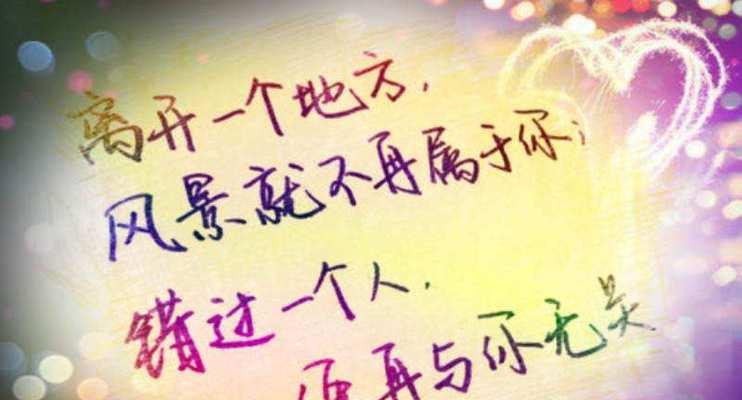 离开一个地方,
风景就不再属于你;
错过一个人,
便再与你无关